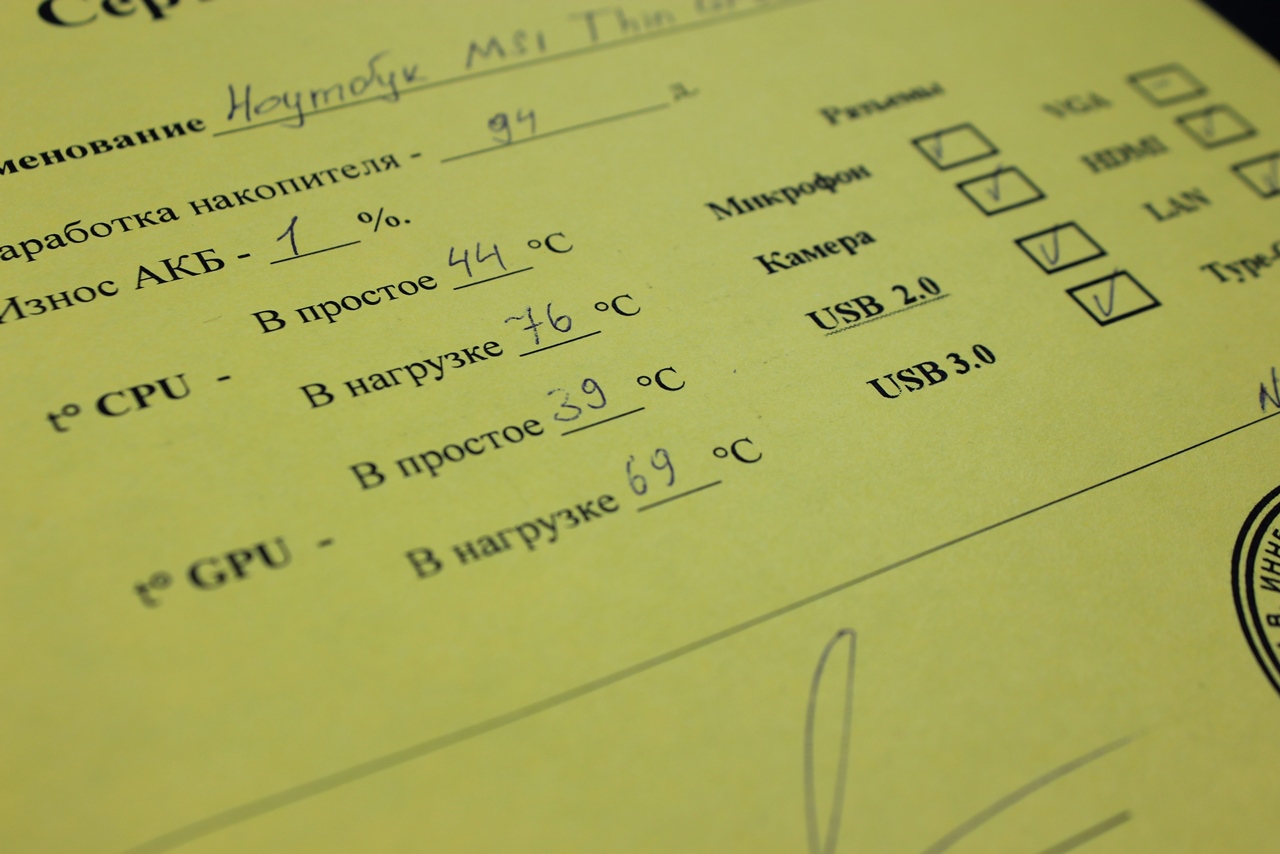 Сер
менование Ноутбук MSI Thin
аработка накопителя - 94 д
Износ АКБ - 1 %.
t° CPU -
В простое 44 °C
В нагрузке 76 °C
t° GPU -
В простое 39 °C
В нагрузке 69 °C
Разъемы
Микрофон ✓
Камера ✓
USB 2.0 ✓
USB 3.0 ✓
VGA -
HDMI ✓
LAN ✓
Type-
N
Я ИННЕ